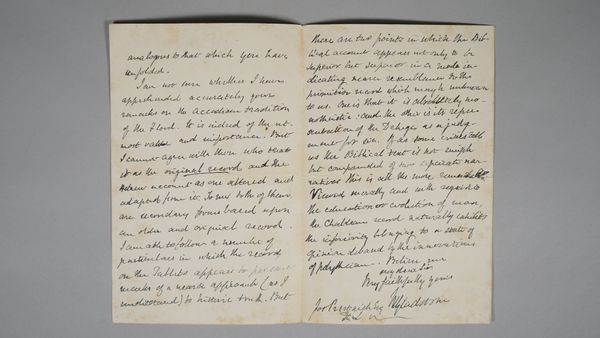 analogous to that which you have
unfolded.
I am not sure whether I have
apprehended accurately your
remarks on the Accadian tradition
of the Flood. It is indeed of the ut-
most value and importance. But
I cannot agree with them who treat
it as the original record and the
Hebrew account as one altered and
adapted from it. To me both of them
are secondary forms based upon
an older and original record.
I am able to follow a number of
particulars in which the record
on the Tablets appears to present
marks of a nearer approach (as I
understand) to historic truth. But
there are two points in which the Bib-
lical account appears not only to be
superior but superior in a mode in-
dicating nearer resemblance to the
primitive record which may be unknown
to us. One is that it is absolutely mo-
notheistic: and the other is its repre-
sentation of the Deluge as a judg-
ment for sin. If as some critics tell
us the Biblical text is not simple
but compounded of two separate nar-
ratives this is all the more remarkable.
Viewed morally and with regard to
the education or evolution of man,
the Chaldean record naturally exhibits
the inferiority belonging to a state of
opinion debased by the innovations
of polytheism. Believe me
my dear Sir
Very faithfully yours
WEGladstone